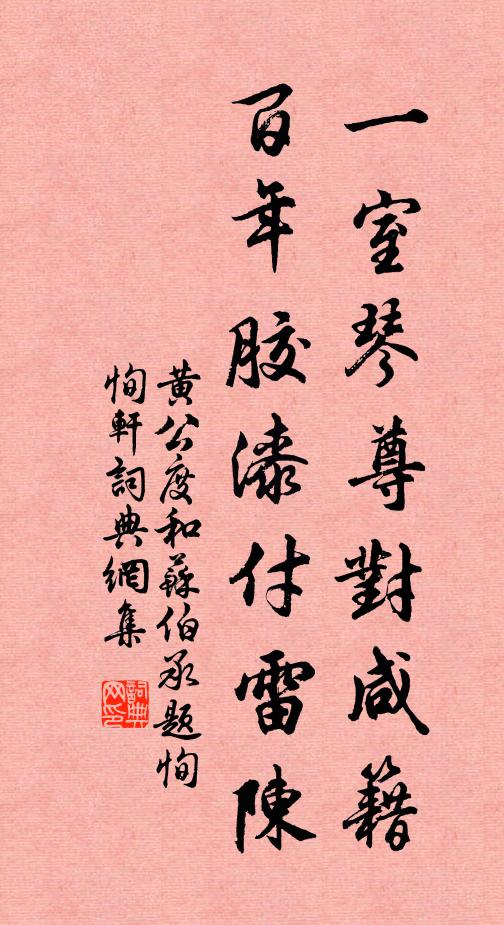 一室琴尊對咸籍
百年膠漆付雷陳
黄公度和蘇伯承题恂
恂軒詞典網集
詞典網印